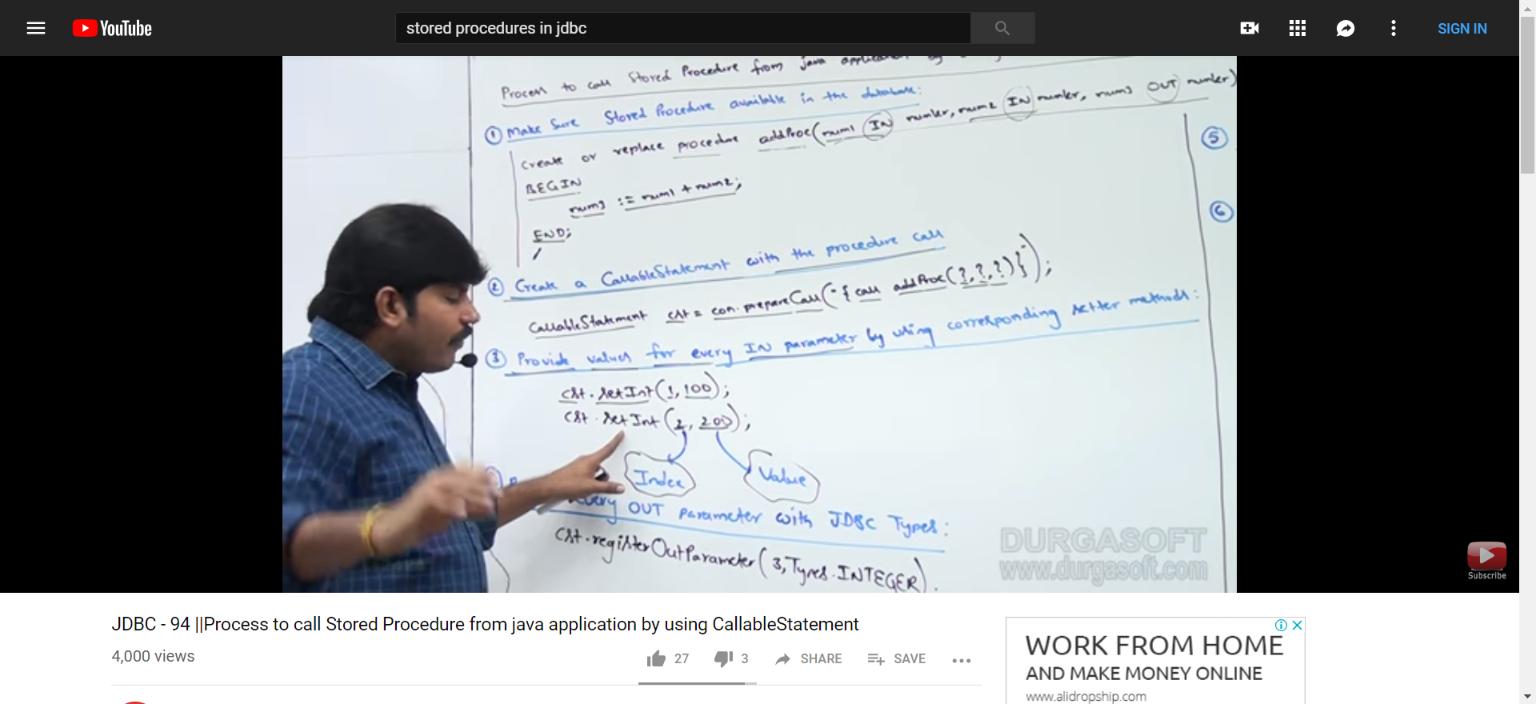 YouTube
stored procedures in jdbc
SIGN IN
Process to call Stored Procedure from java
① Make Sure Stored Procedure available in the database:
create or replace procedure addProc(num1 IN number, num2 IN number, num3 OUT number)
BEGIN
num3 := num1 + num2;
END;
/
② Create a CallableStatement with the procedure call
CallableStatement cst = con.prepareCall("{call addProc(?,?,?)}");
③ Provide values for every IN parameter by using corresponding setter methods:
cst.setInt(1,100);
cst.setInt(2,200);
Index Value
every OUT parameter with JDBC Types:
cst.registerOutParameter(3,Types.INTEGER)
⑤
⑥
DURGASOFT
www.durgasoft.com
Subscribe
JDBC - 94 ||Process to call Stored Procedure from java application by using CallableStatement
4,000 views
27 3 SHARE SAVE
WORK FROM HOME
AND MAKE MONEY ONLINE
www.alidropship.com